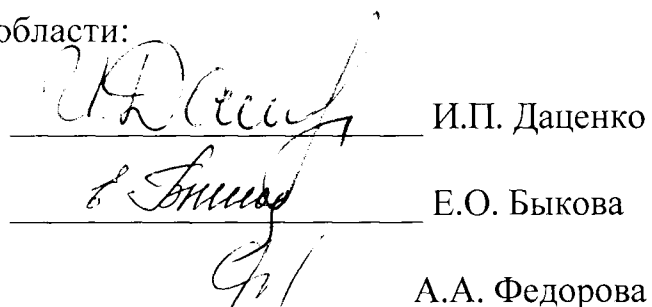 области:
И.П. Даценко
Е.О. Быкова
А.А. Федорова